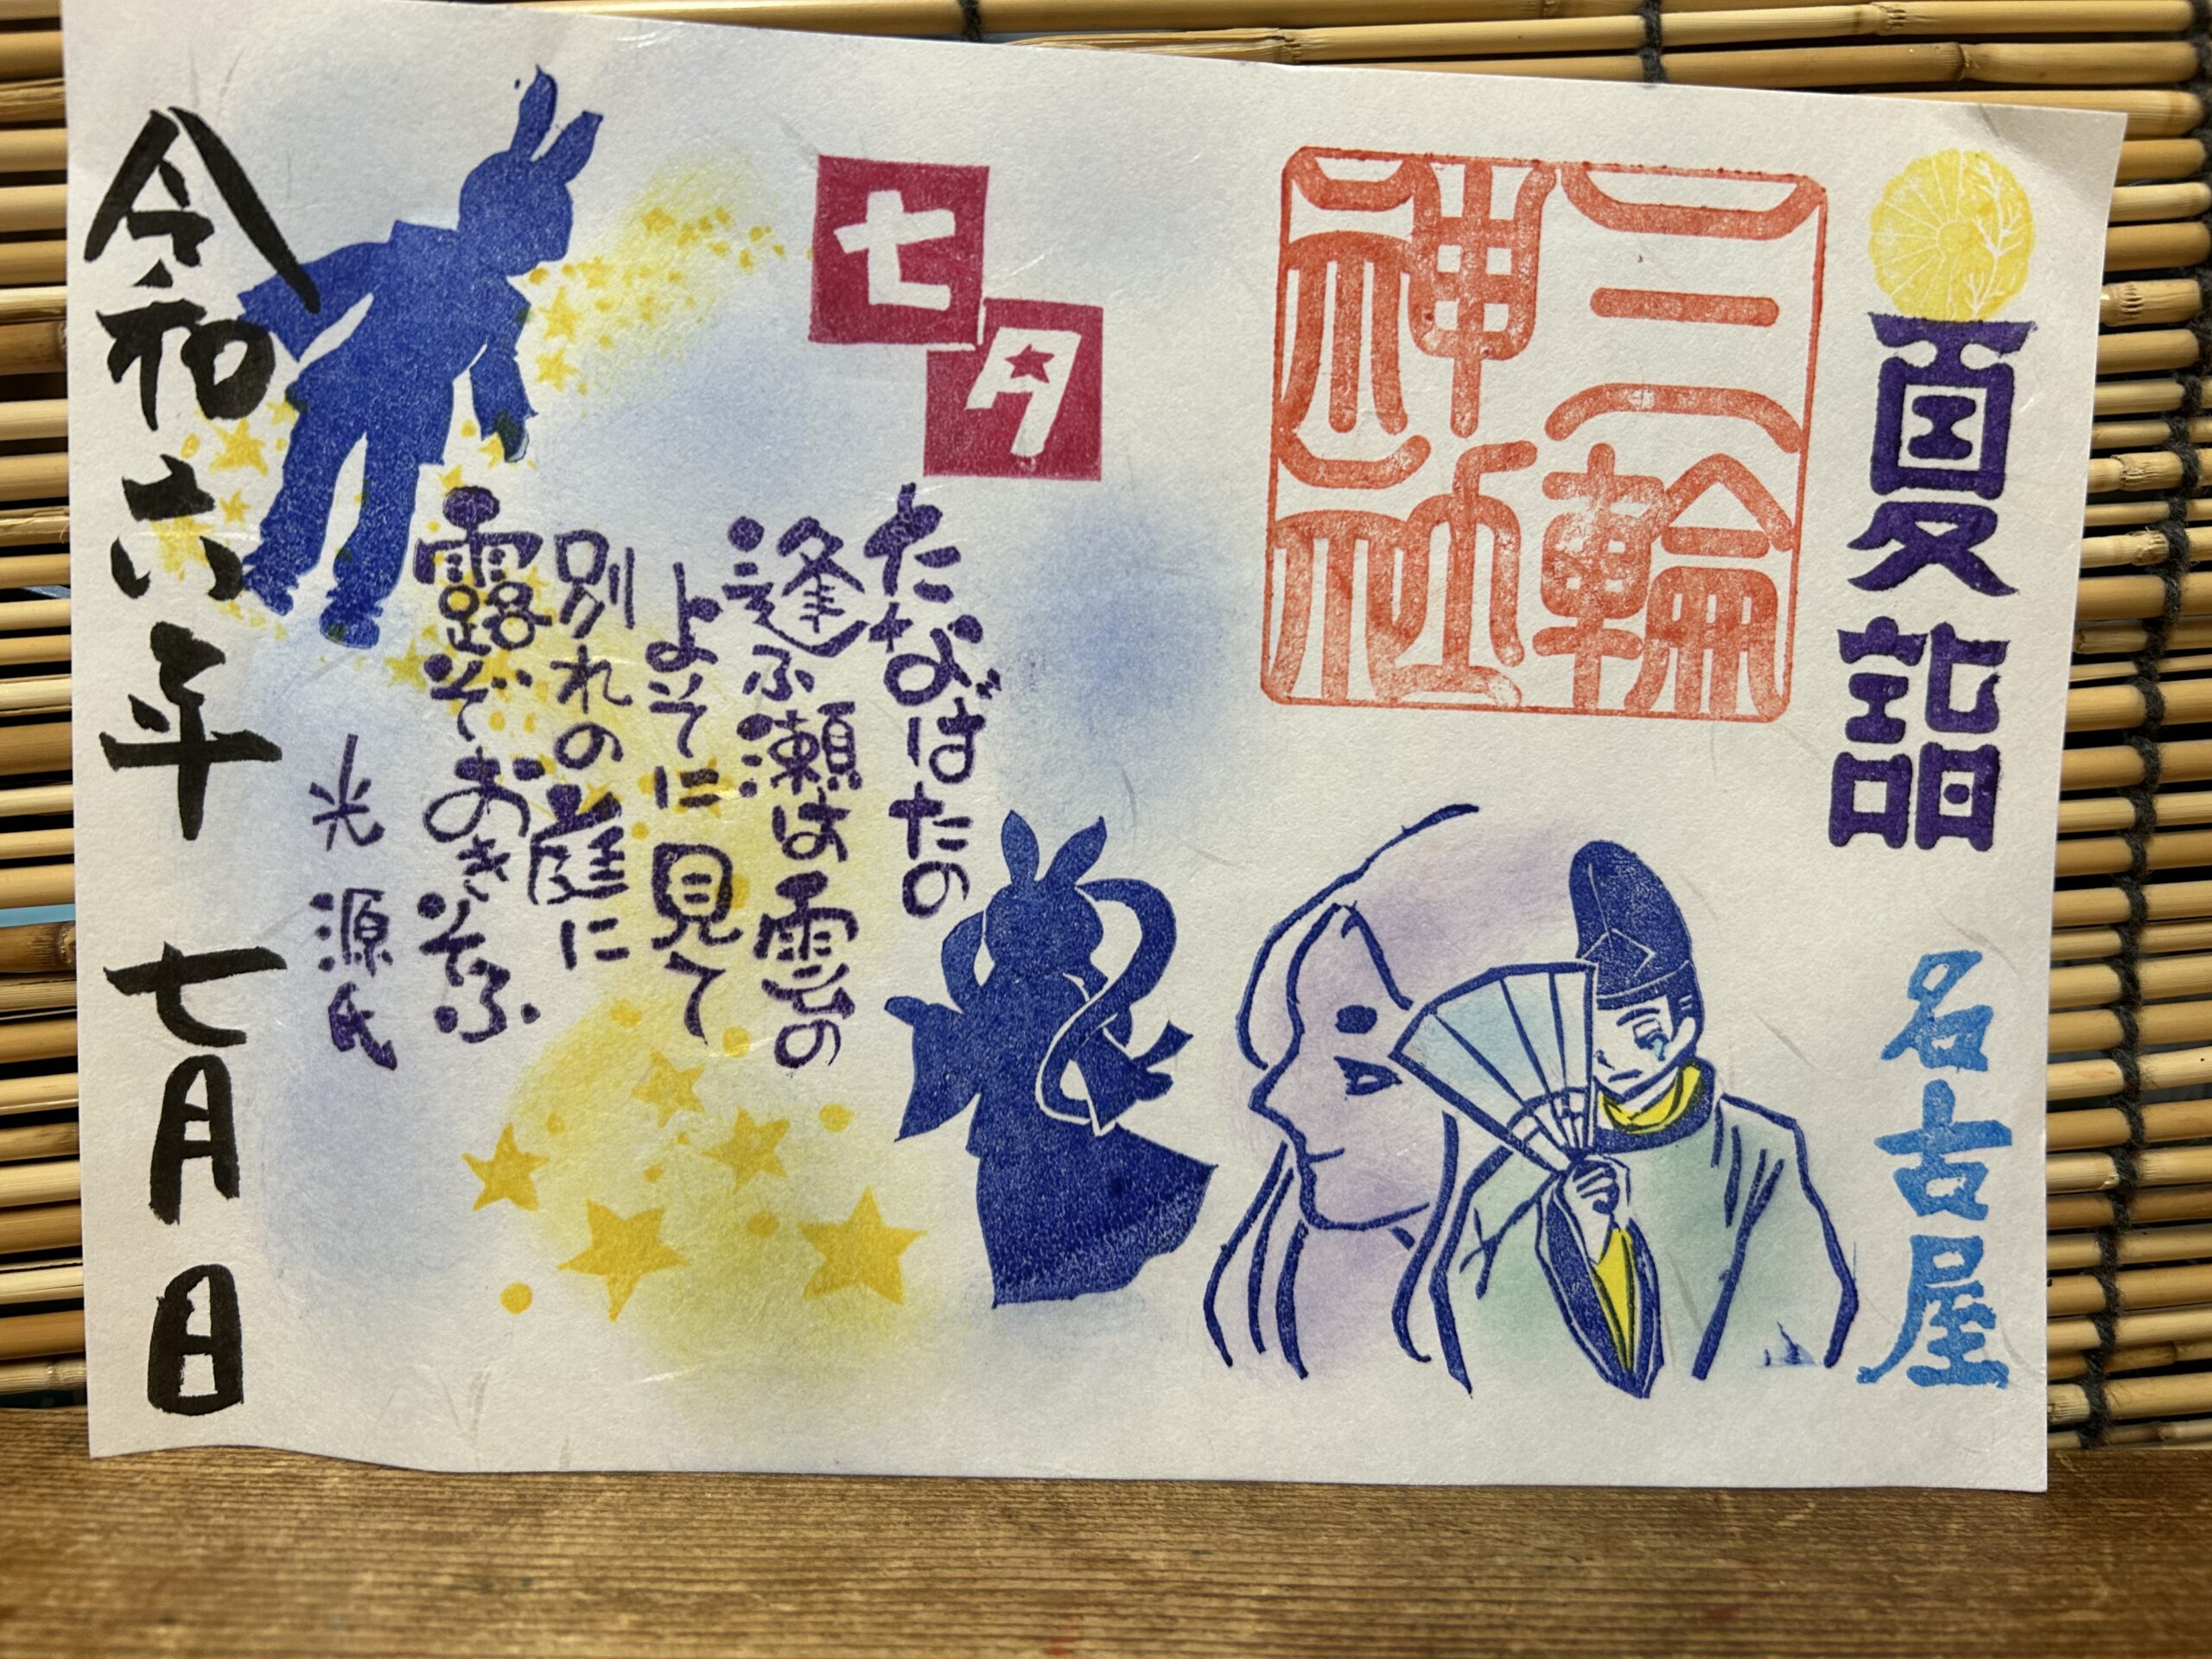 夏詣
名古屋
三輪
神社
七夕
たなばたの
逢ふ瀬は雲の
よそに見て
別れの庭に
露ぞおきそふ
光源氏
令和六年七月日